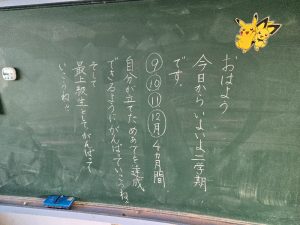 おはよう
今日からいよいよ二学期
です。
⑨⑩⑪⑫月 4ヵ月間
自分が立てためあてを達成
できるようにがんばっていこうね。
そして
最上級生としてがんばって
いこうね!!